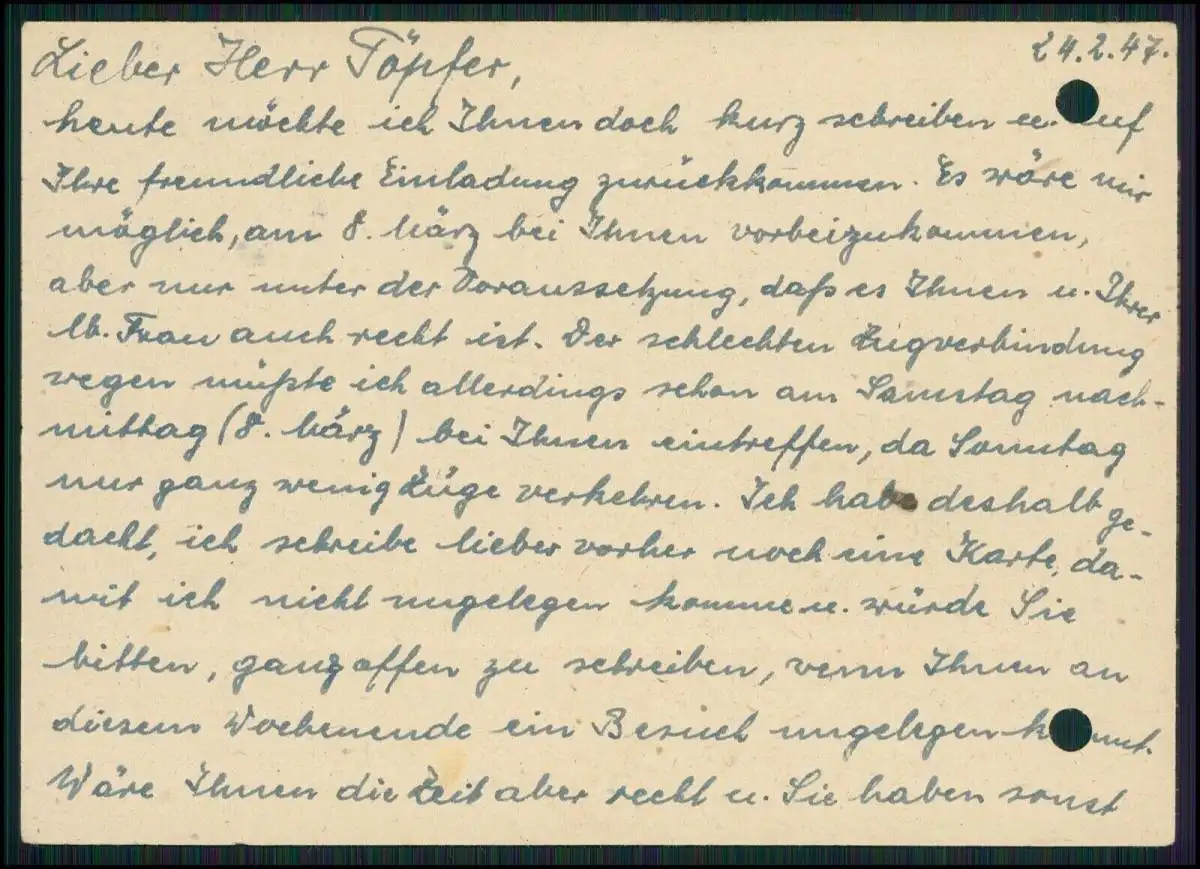 24.2.47.
Lieber Herr Töpfer,
heute möchte ich Ihnen doch kurz schreiben u. auf
Ihre freundliche Einladung zurückkommen. Es wäre mir
möglich, am 8. März bei Ihnen vorbeizukommen,
aber nur unter der Voraussetzung, daß es Ihnen u. Ihrer
lb. Frau auch recht ist. Der schlechten Zugverbindung
wegen müßte ich allerdings schon am Samstag nach-
mittag (8. März) bei Ihnen eintreffen, da Sonntag
nur ganz wenig Züge verkehren. Ich habe deshalb ge-
dacht, ich schreibe lieber vorher noch eine Karte, da-
mit ich nicht ungelegen komme u. würde Sie
bitten, ganz offen zu schreiben, wenn Ihnen an
diesem Wochenende ein Besuch ungelegen kommt.
Wäre Ihnen die Zeit aber recht u. Sie haben sonst